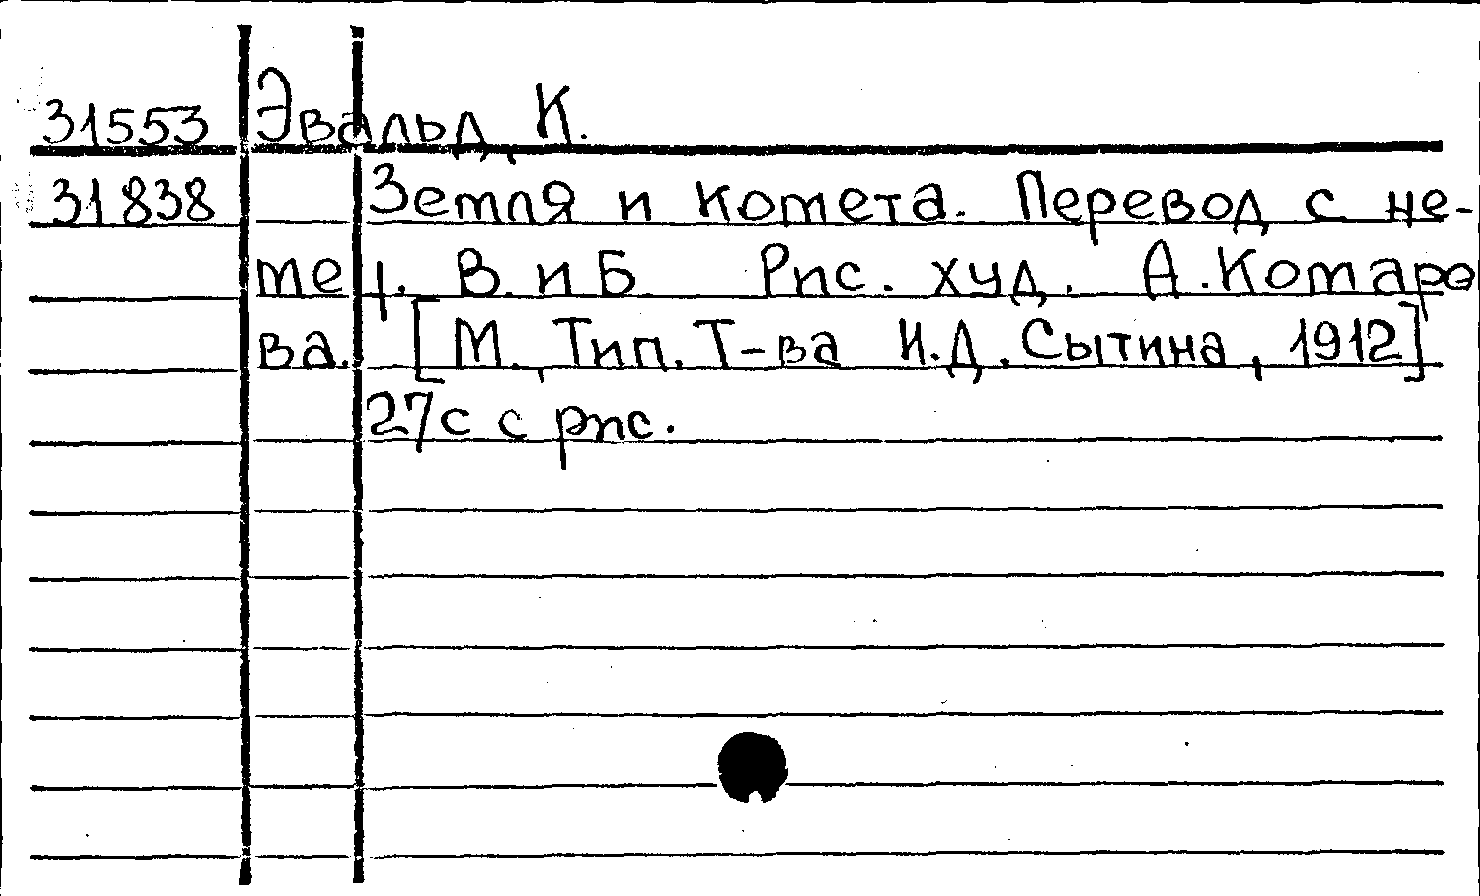 31553 Эвальд, К.
31838 Земля и комета. Перевод с не-
мец. В. и Б. Рис. худ. А. Комаро
ва. [М., Тип. Т-ва И.Д. Сытина, 1912]
27с с рис.